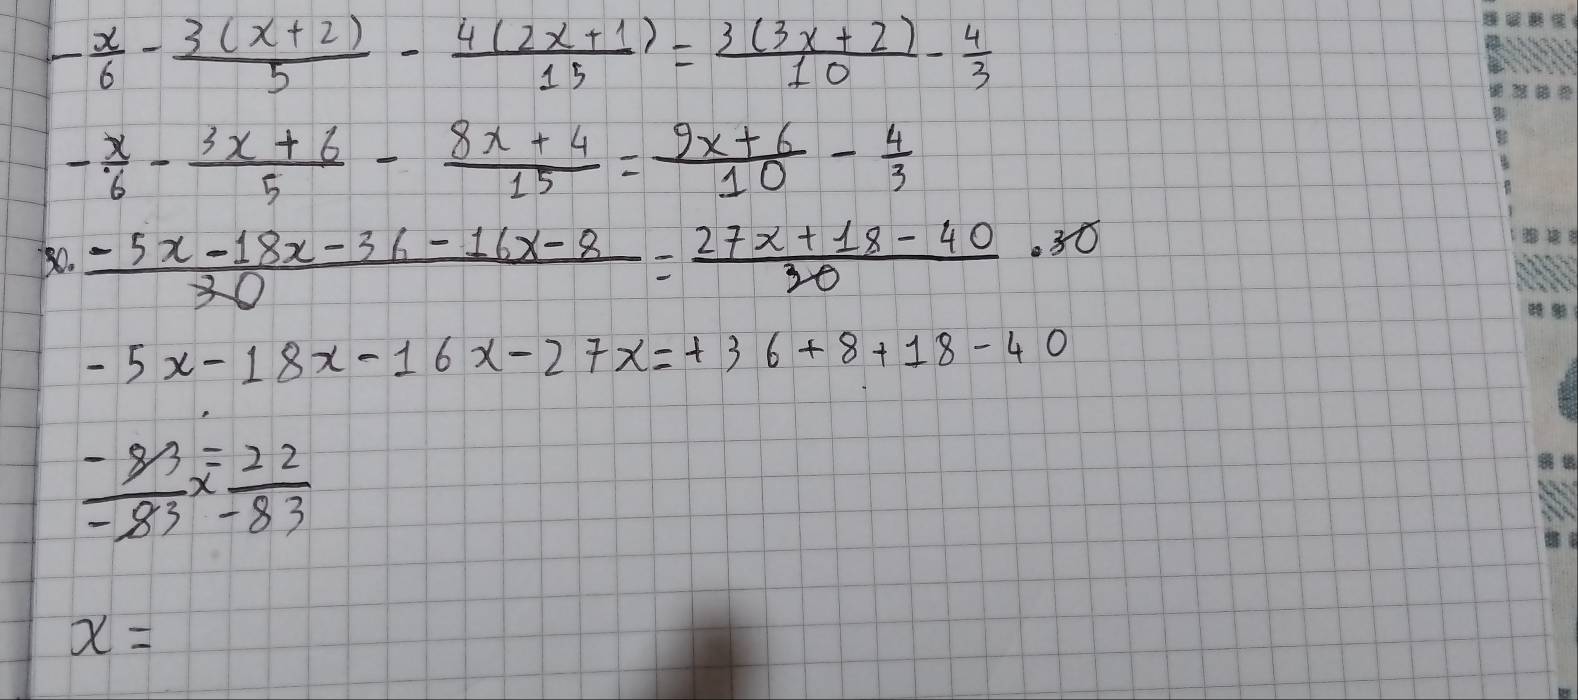 -x/6 - 3(x+2)/5 - 4(2x+1)/15 = 3(3x+2)/10 - 4/3
-x/6 - 3x+6/5 - 8x+4/15 = 9x+6/10 - 4/3
30. -5x-18x-36-16x-8/30 = 27x+18-40/30 .30
-5x-18x-16x-27x=+36+8+18-40
-83/-83 x = 22/-83
x =